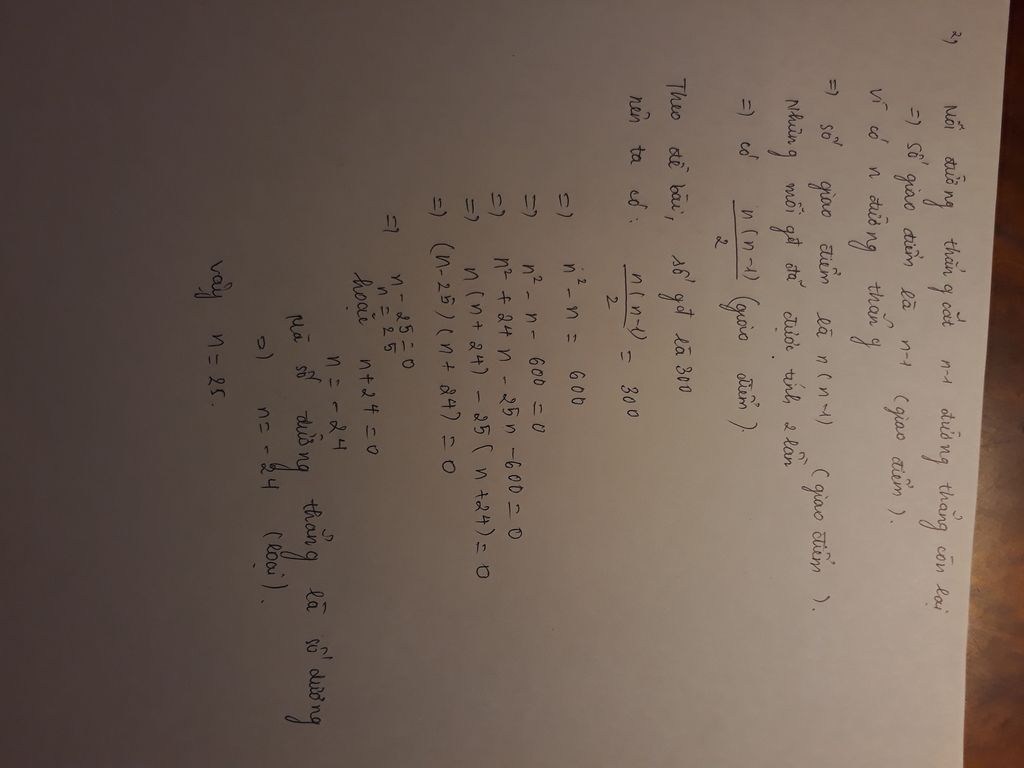 2,
Mỗi đường thẳng cắt n-1 đường thẳng còn lại
=) số giao điểm là n-1 (giao điểm).
Vì có n đường thẳng
=) số giao điểm là n(n-1) (giao điểm).
Nhưng mỗi gđ đã được tính 2 lần
=) có n(n-1)/2 (giao điểm).
Theo đề bài, số gđ là 300
nên ta có: n(n-1)/2 = 300
=) n² - n = 600
=) n² - n - 600 = 0
=) n² + 24n - 25n - 600 = 0
=) n(n+24) - 25(n+24) = 0
=) (n-25)(n+24) = 0
=) n-25=0
n = 25
hoặc n+24=0
n = -24
Mà số đường thẳng là số dương
=) n = -24 (loại).
Vậy n = 25.